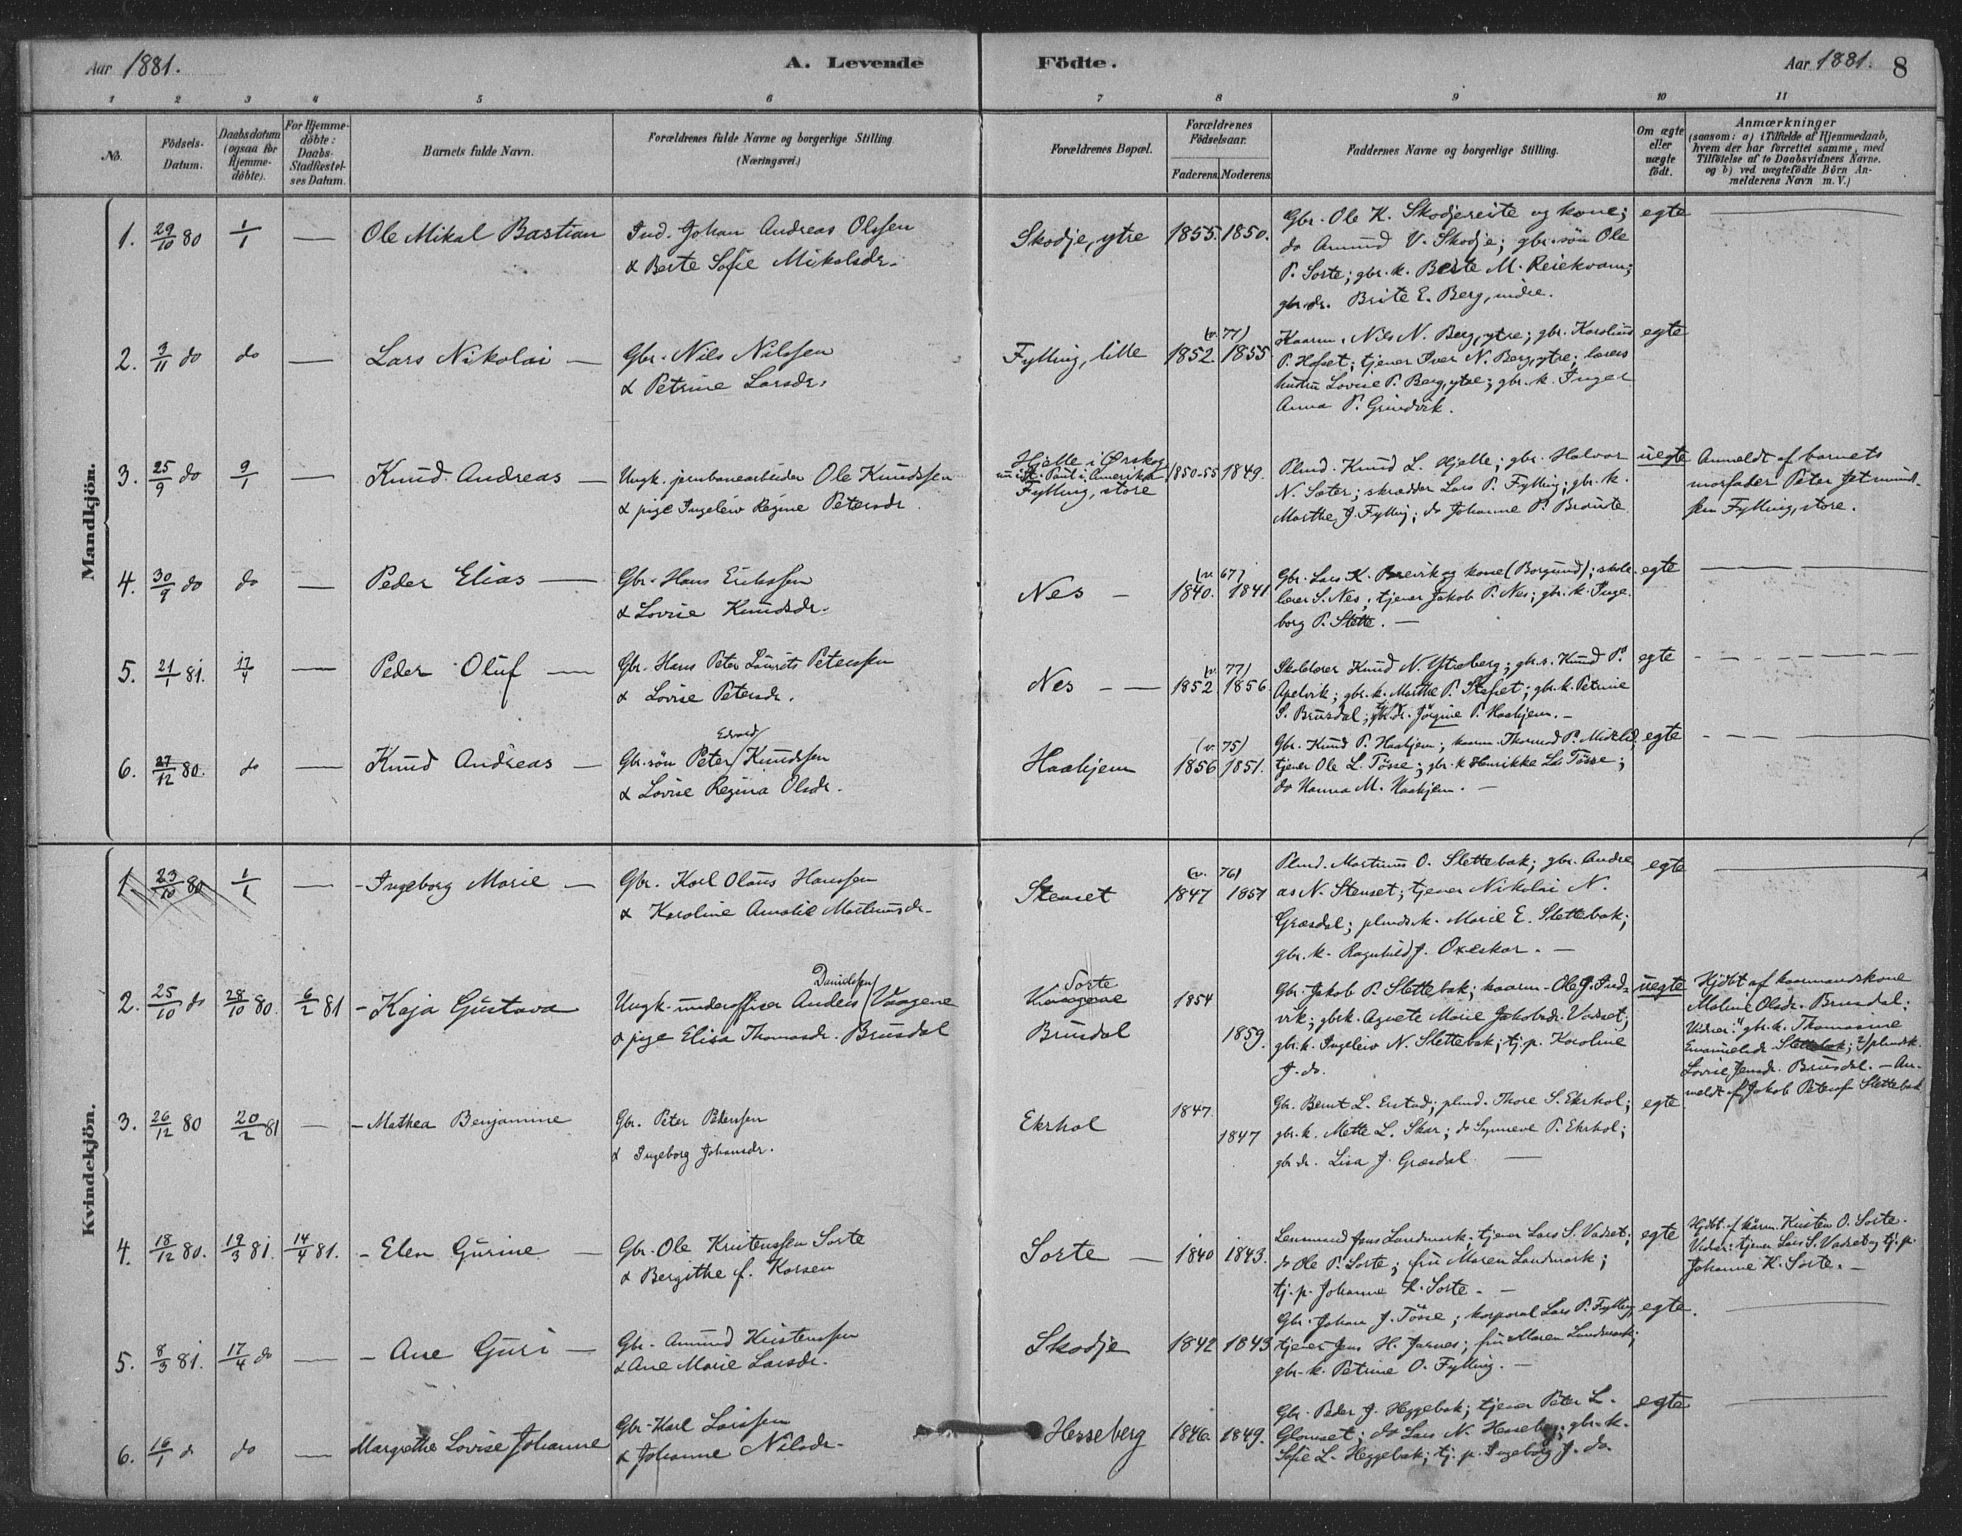 Aar 1881. A. Levende Födte. Aar 1881. 8
1 2 3 4 5 6 7 8 9 10 11
No. Födsels-Datum. Daabsdatum (ogsaa for Hjemme-döbte). For Hjemme-döbte: Daabs-Stadfæstel-ses Datum. Barnets fulde Navn. Forældrenes fulde Navne og borgerlige Stilling. (Næringsvei.) Forældrenes Bopæl. Forældrenes Födselsaar. Faderens. Moderens. Faddernes Navne og borgerlige Stilling. Om ægte eller uægte födt. Anmærkninger (saasom: a) i Tilfælde af Hjemmedaab, hvem der har forrettet samme, med Tilföielse af to Daabsvidners Navne. og b) ved uægtefödte Börn An-melderens Navn m. V.)
Mandkjön.
1. 29/10 80 1/1 — Ole Mikal Bastian
Ind. Johan Andreas Olssen
& Berte Sofie Mikalsdr.
Skodje, ytre 1855. 1850.
Gbr. Ole K. Skodjereite og kone;
do Amund V. Skodje; gbr.søn Ole
P. Sorte; gbr.k. Berte M. Reiekvam;
gbr.dr. Brite E. Berg, indre.
egte
2. 3/11 do do — Lars Nikolai —
Gbr. Nils Nilssen
& Petrine Larsdr.
Fylling, lille (v. 77) 1852 1855
Kaarm. Nils N. Berg, ytre; gbr. Karolius
P. Hofset; tjener Iver N. Berg, ytre; lærers
hustru Lovise P. Berg, ytre; gbr.k. Inger
Anna P. Grindvik.
egte
3. 25/9 do 9/1 — Knud Andreas —
Ungk. jernbanearbeider Ole Knudssen
& pige Ingeleiv Regine Petersdr.
Hjelle i Ørskog
nu i St. Paul i Amerika
Fylling, store
1850-55 1849.
Plmd. Knud L. Hjelle; gbr. Halvor
N. Sæter; skrædder Lars P. Fylling; gbr.k.
Marthe J. Fylling; do Johanne P. Brauste
uegte
Anmeldt af barnets
morfader Peter Jetmund-
ssen Fylling, store.
4. 30/9 do do — Peder Elias —
Gbr. Hans Erikssen
& Lovise Knudsdr.
Nes — (v. 67) 1840. 1841
Gbr. Lars K. Brevik og kone (Borgund); skole-
lærer S. Nes; tjener Jakob P. Nes; gbr.k. Inge-
borg P. Slette. —
egte
5. 21/1 81. 17/4 — Peder Oluf —
Gbr. Hans Peter Laurits Peterssen
& Lovise Petersdr.
Nes — (v. 77) 1852 1856.
Skolelærer Knud N. Ystreberg; gbr.s. Knud P.
Apelvik; gbr.k. Marthe P. Stafset; gbr.k. Petrine
S. Brusdal; gbr.dr. Jørgine P. Haahjem. —
egte
6. 27/12 80. do — Knud Andreas —
Edvard
Gbr.søn Peter Knudssen
& Lovise Regina Olsdr.
Haahjem (v. 75) 1856 1851.
Gbr. Knud P. Haahjem; kaarm. Thomas P. Midtlid;
tjener Ole L. Tösse; gbr.k. Henrikke Ls. Tösse;
do Hanna M. Haahjem. —
egte
Kvindekjön.
1. 23/10 80 1/1 — Ingeborg Marie —
Gbr. Karl Olaus Hanssen
& Karoline Amalie Martinusdr.
Stenset (v. 76) 1847 1851
Plmd. Martinus O. Slettebak; gbr. Andre
as N. Stenset; tjener Nikolai N.
Græsdal; plmds.k. Marie E. Slettebak;
gbr.k. Ragnhild J. Oxeskar. —
egte
2. 25/10 do 28/10 80 6/2 81 Kaja Gustava
Danielssen
Ungk. underofficer Anders Vaagene
& pige Elisa Thomasdr. Brusdal
Sorte
Vaagene
Brusdal
1854 1859.
Gbr. Jakob P. Slettebak; kaarm. Ole J. Ind-
vik; gbr.k. Agnete Marie Jakobsdr. Vadset;
gbr.k. Ingeleiv N. Slettebak; tj.p. Karoline
J. do.
uegte
Hjdbt af kaarmandskone
Maline Olsdr. Brusdal.
Vidner: 1) gbr.k. Thomasine
Emanuelsdr. Slettebak; 2) plmdsk.
Lovise Jensdr. Brusdal. — An-
meldt af Jakob Peterss. Slettebak
3. 26/12 80 20/2 81 — Mathea Benjamine
Gbr. Peter Peterssen
& Ingeborg Johansdr.
Ekrhol 1847 1847
Gbr. Bernt L. Erstad; plmd. Thore S. Ekrhol;
gbr.k. Mette L. Skar; do Synneve P. Ekrhol;
gbr.dr. Lisa J. Græsdal —
egte
4. 18/12 80. 19/3 81. 14/4 81. Elen Gurine
Gbr. Ole Kristenssen Sorte
& Bergithe f. Korsen
Sorte — 1840 1843.
Lensmand Jens Landmark; tjener Lars S. Vadset;
do Ole P. Sorte; fru Maren Landmark;
tj.p. Johanne K. Sorte. —
egte
Hjdbt. af kaarm. Kristen O. Sorte.
Vidner: tjener Lars S. Vadset og tj.p.
Johanne K. Sorte. —
5. 8/3 81. 17/4 do — Ane Guri —
Gbr. Amund Kristenssen
& Ane Marie Larsdr.
Skodje 1842 1843
Gbr. Johan J. Tösse; korporal Lars P. Fylling;
tjener Jens H. Jarnes; fru Maren Landmark;
gbr.k. Petrine O. Fylling. —
egte.
6. 16/1 do do — Margrethe Lovise Johanne
Gbr. Karl Larssen
& Johanne Nilsdr.
Hesseberg 1846. 1849.
Gbr. Peder J. Heggebak; tjener Peter L.
Glomset; do Lars N. Hesseberg; gbr.k.
Sofie L. Heggebak; tj.p. Ingeborg J. do.
egte